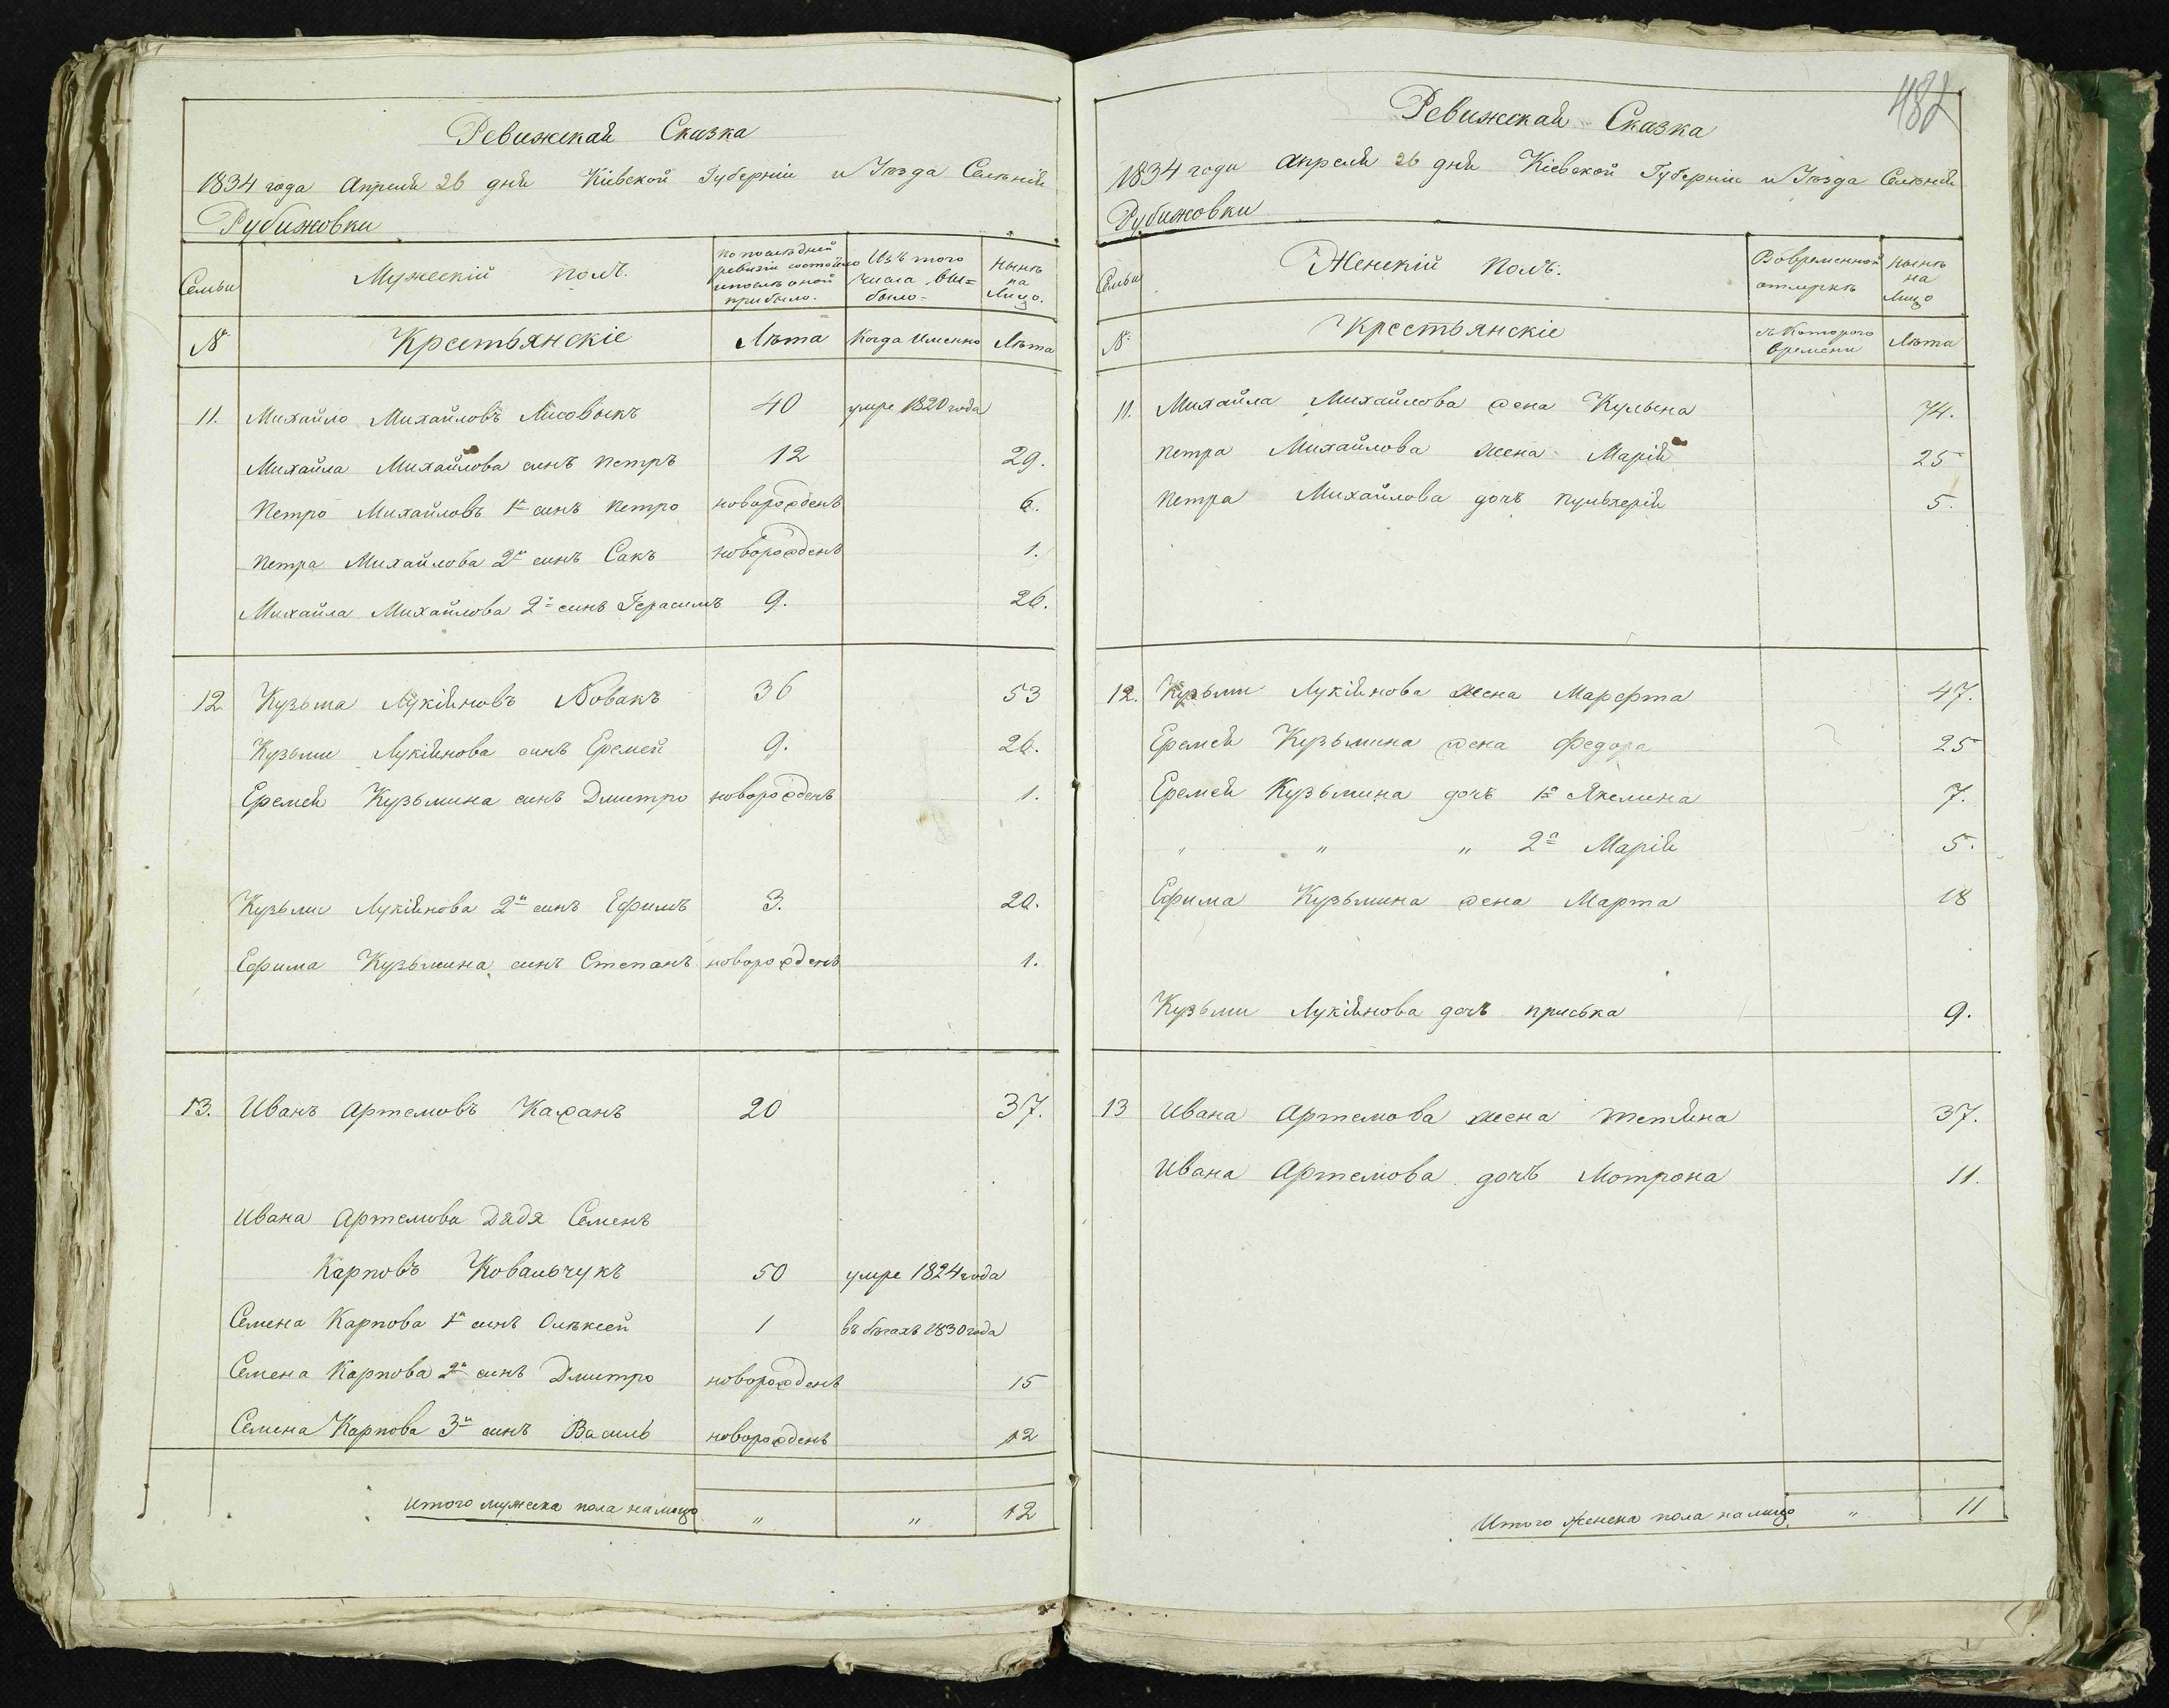 Ревижская Сказка
1834 года Апреля 26 дня Кіевской Губерніи и Уезда Селенія
Рубижовки
Семьи
Мужескій полъ.
по последней
ревизіи состояло
и после оной
прибыло.
Изъ того
числа вы=
было=
ныне
на
Лицо.
№
Крестьянскіе
Лѣта
Когда Именно
Лѣта
11. Михайло Михайловъ Лисовыкъ 40 умре 1820 года
Михайла Михайлова синъ петръ 12 29.
петро Михайловъ 1й синъ петро новорожденъ 6.
петра Михайлова 2й синъ Сакъ новорожденъ 1.
Михайла Михайлова 2й синъ Герасимъ 9. 26.
12 Кузьма Лукіяновъ Новакъ 36 53
Кузьми Лукіянова синъ Еремей 9. 26.
Еремея Кузьмина синъ Дмитро новорожденъ 1.
Кузьми Лукіянова 2й синъ Ефимъ 3. 20.
Ефима Кузьмина синъ Степанъ новорожденъ 1.
13. Иванъ Артемовъ Кажанъ 20 37.
Ивана Артемова Дядя Семенъ
Карповъ Ковальчукъ 50 умре 1824 года
Семена Карпова 1й синъ Олѣксей 1 въ бѣгахъ 1830 года
Семена Карпова 2й синъ Дмитро новорожденъ 15
Семена Карпова 3й синъ Василь новорожденъ 12
Итого мужеска пола налицо " " 12
482
Ревижская Сказка
1834 года Апреля 26 дня Кіевской Губерніи и Уезда Селенія
Рубижовки
Семьи
Женскій полъ.
Вовременной
отлучкѣ
ныне
на
Лицо
№.
Крестьянскіе
съ Которого
Времени
Лѣта
11. Михайла Михайлова жена Кульына 74.
петра Михайлова жена Марія 25
петра Михайлова дочь пульхерія 5.
12. Кузьми Лукіянова жена Марфта 47.
Еремея Кузьмина жена Федора 25
Еремея Кузьмина дочь 1а Якелина 7.
" " " 2а Марія 5.
Ефима Кузьмина жена Марта 18
Кузьми Лукіянова дочь приська 9.
13 Ивана Артемова жена Тетяна 37.
Ивана Артемова дочь Мотрона 11.
Итого женска пола налицо " 11